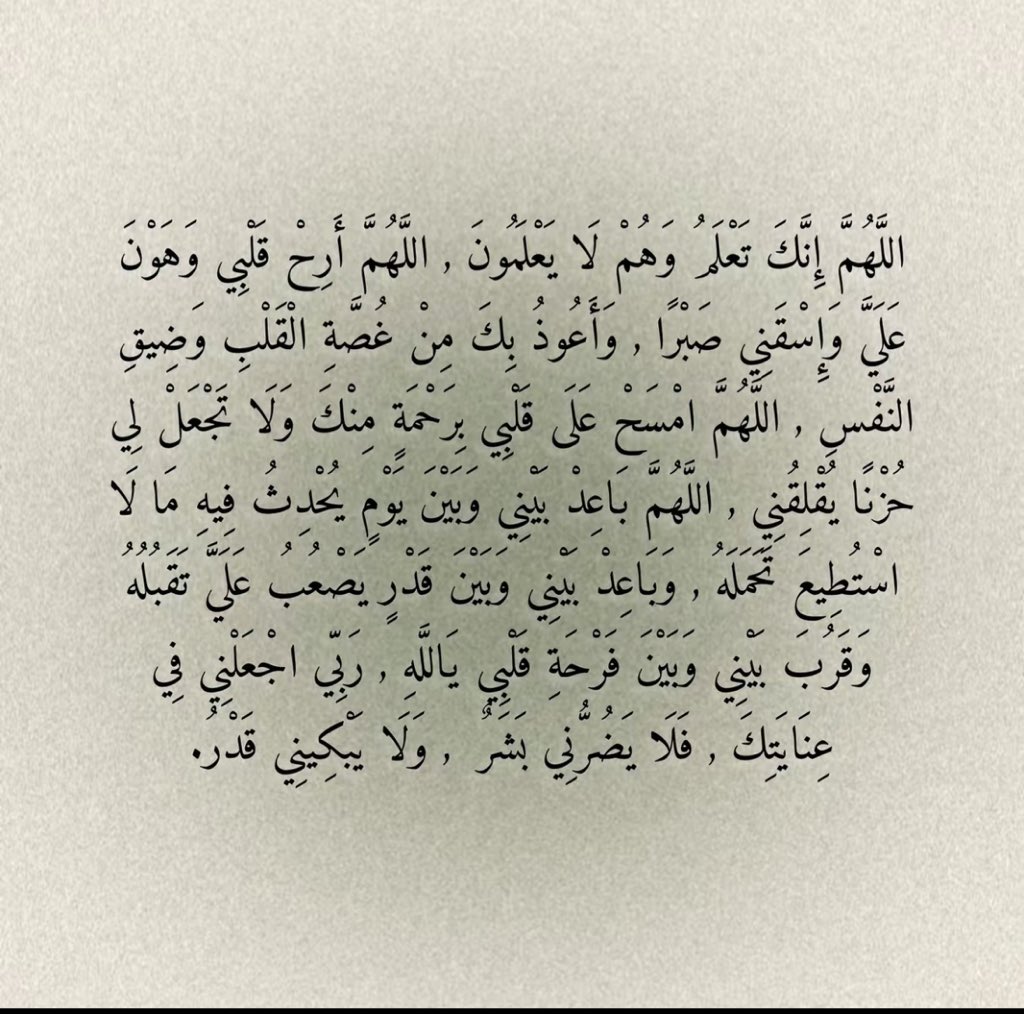 اللَّهُمَّ إِنَّكَ تَعْلَمُ وَهُمْ لَا يَعْلَمُونَ , اللَّهُمَّ أَرِحْ قَلْبِي وَهَوْنَ
عَلَيَّ وَإِسْقَنِي صَبْرًا , وَأَعُوذُ بِكَ مِنْ غُصَّةِ الْقَلْبِ وَضِيقِ
النَّفْسِ , اللَّهُمَّ امْسَحْ عَلَى قَلْبِي بِرَحْمَةٍ مِنْكَ وَلَا تَجْعَلْ لِي
حُزْنًا يُقْلِقُنِي , اللَّهُمَّ بَاعِدْ بَيْنِي وَبَيْنَ يَوْمٍ يُحْدِثُ فِيهِ مَا لَا
اسْتُطِيعَ تَحَمَلَهُ , وَبَاعِدْ بَيْنِي وَبَيْنَ قَدْرٍ يَصْعُبُ عَلَيَّ تَقَبُلُهُ
وَقَرُبَ بَيْنِي وَبَيْنَ فَرْحَةِ قَلْبِي يَاللَّهِ , رَبِّي اجْعَلْنِي فِي
عِنَايَتِكَ , فَلَا يَضُرُّنِي بَشَرٌ , وَلَا يَبْكِينِي قَدْرُ.